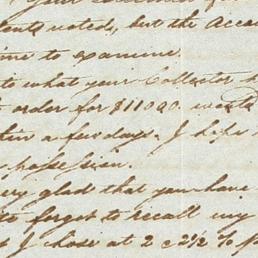 your
noted, but the Accou
time to examine.
to what your Collector
order for $11000. would
thin a few days. I hope
possession.
very glad that you have
to forget to recall my
I chose at 2 @ 2½ % p